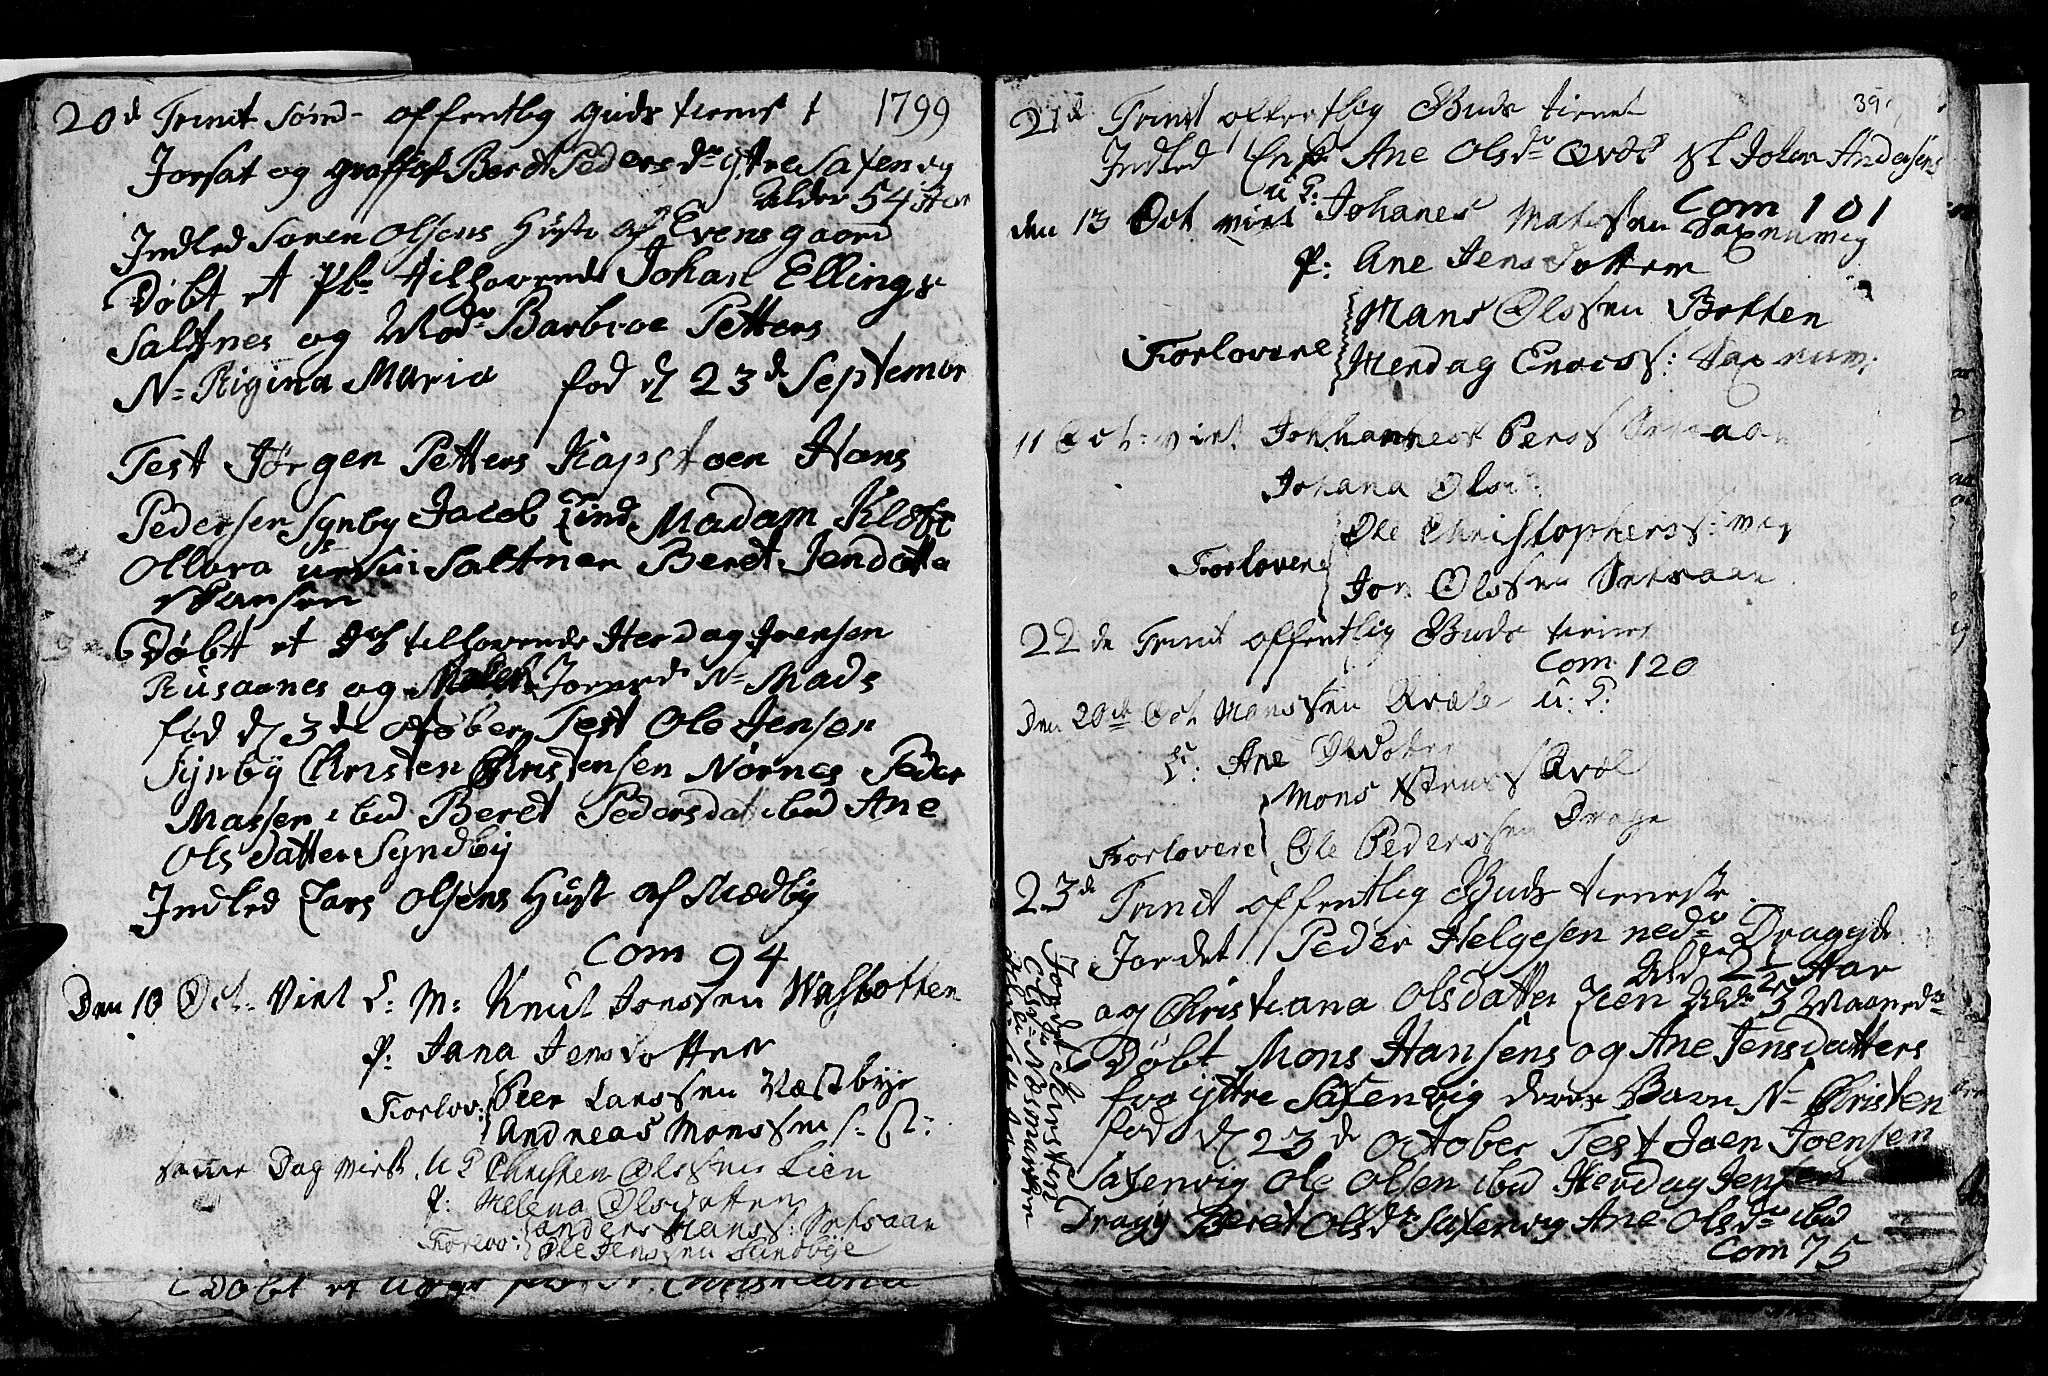 20d Trinit Sønd- offentlig guds tienest 1799
Jorsat og graffæst Beret Peders dr yttre Saxenvig
Alder 54 Aar
Indled Søren Olsens Hustr af Evensgaard
Døbt et Pb tilhørende Johan Ellings
Saltnes og Modr Barbroe Petters
N= Rigina Maria fød d 23d September
Test Jørgen Petters Kapstoen Hans
Pedersen Synby Jacob Lind Madam Kløbe
Ollava Saltnes Beret Jendatte
Døbt et tilhørende Herdag Joensen
Rusaanes og N= Mads
fød d 3de october Test Ole Jensen
Synby Christen Christensen Nørnes Peder
Massen ibid Beret Pedersdat ibid Ane
Olsdatter Syndby
Indled Lars Olsens Hust af
Com 94
Den 10 Oct. Viet M: Knut Jonssen Wasbotten
P: Jana Jensdotter
Forlov: Peer Larssen Væstbye
Andreas Monssen
samme Dag viet U P Christen Olssen Lien
P: Helena Olsdotter
Forlov: anders Hanss: Setsaan
Ole Jenssen Sundbye
Døbt et N. Christiana
39
21d Trinit offentlig Guds tienest
Indled Ane Olsdr Qvæl Johan Andersens
Com 101
den 13 Oct viet U P: Johanes Matssen Saxenvig
P: Ane Jensdotter
Forlovere Mans Olssen Botten
Herdag Enocss: Saxenvi:
11 Oct: viet Johhannes Perss Setsaan
Johana Olsd:
Forlovere Ole Christopherss:
Jon Olssen Setsaan
22de Trinit offentlig Guds tienest
Com 120
Den 20de Oct Monssen Qvæle U: P:
P: Ane Olsdotter
Mons Qvæl
Forlovere Ole Pederssen Drage
23de Trinit offentlig Guds tieneste
Jordet Peder Helgesen nedr Dragejd
Alder 2 1/2 Aar
og Christiana Olsdatter Lien Aldr 3 Maanedr
Døbt Mons Hansens og Ane Jensdatters
fra yttre Saxenvig deres Barn N= Christen
fød d 23d october Test Joen Joensen
Saxenvig Ole Olsen ibid Herdag Jensen
Dragejd Beret Olsdr Saxenvig Ane Olsdr ibid
Com 75
Jordet Kirsten